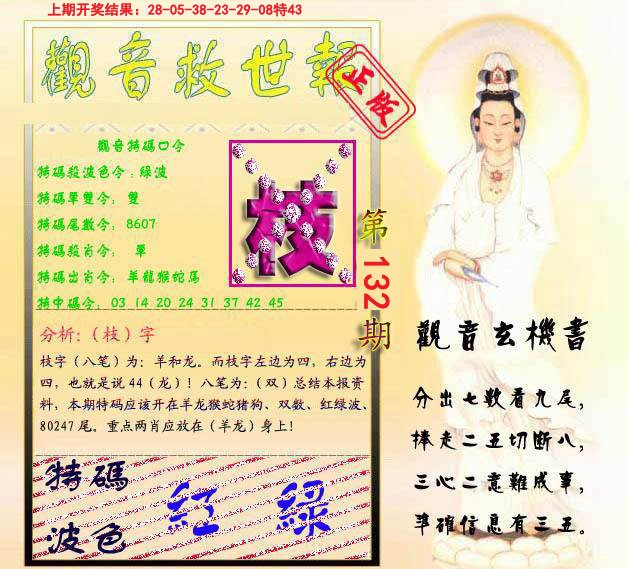 上期开奖结果：28-05-38-23-29-08特43
觀音救世報
正版
觀音特碼口令
特碼殺波色令：綠波
特碼單雙令： 雙
特碼尾數令： 8607
特碼殺肖令： 單
特碼出肖令： 羊龍猴蛇馬
特中碼令： 03 14 20 24 31 37 42 45
枝
第132期
分析：（枝）字
枝字（八笔）为：羊和龙。而枝字左边为四，右边为
四，也就是说44（龙）！八笔为：（双）总结本报资
料，本期特码应该开在羊龙猴蛇猪狗、双数、红绿波、
80247尾。重点两肖应放在（羊龙）身上！
特碼
波色
紅 綠
觀音玄機書
分出七數看九尾，
棒走二五切断八，
三心二意難成事，
準確信息有三五。